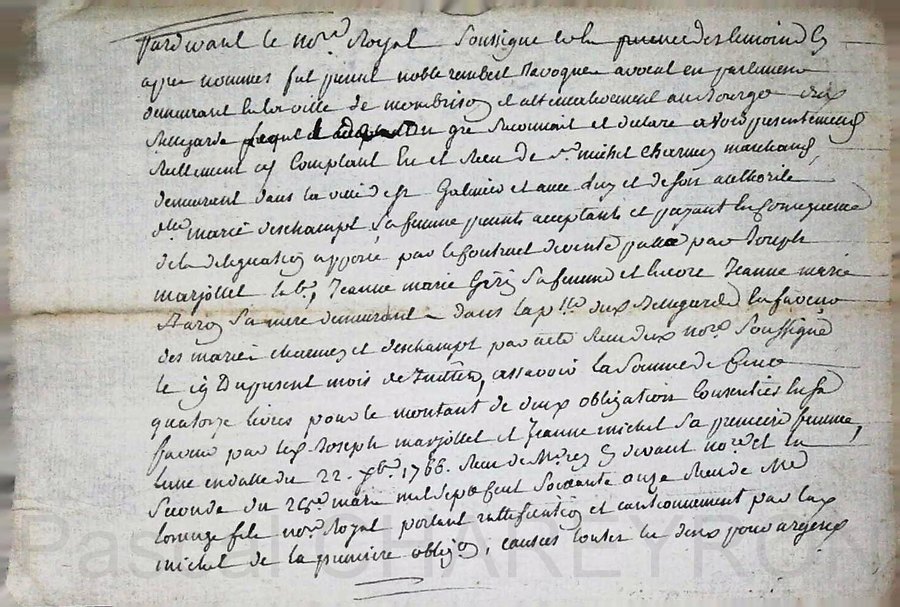 Pardevant le no.re Royal Soussigne et en presence des temoins cy
apres nommes fut present noble rambert avocat en parlement
demeurant en la ville de monbrison et alternativement au Bourg de
Bellegarde lequel de gré Reconnait et declare avoir presentement
Reellement et Comptant Eu et Receu de S.r michel marchand
demeurant dans la ville de St Galmier et avec luy et de son authorité
d.lle marie deschampt Sa femme presents acceptants et payant En Consequence
de la delegation apposée par le Contract de vente passé par Joseph
marjollet lab.r, Jeanne marie Sa femme et Encore Jeanne marie
Sa mere demeurant dans la p.sse dud Bellegarde En faveur
des mariés et deschampt par acte Receu dud no.re Soussigné
le 19 Du present mois de , assavoir la Somme de Cent
quatorze livres pour le montant de deux obligations Consenties En Sa
faveur par led Joseph marjollet et Jeanne michel Sa premiere femme,
L'une en datte du 22. xb.re 1766. Receu de M.e Rey Cy devant no.re et la
Seconde du mars mil Sept Cent Soixante onze Receu de Me
Laronze fils no.re Royal portant rattiffication et cautionnement par lad
michel de la premiere oblig.on, causees toutes les deux pour argent
Pascal CHAREYRON